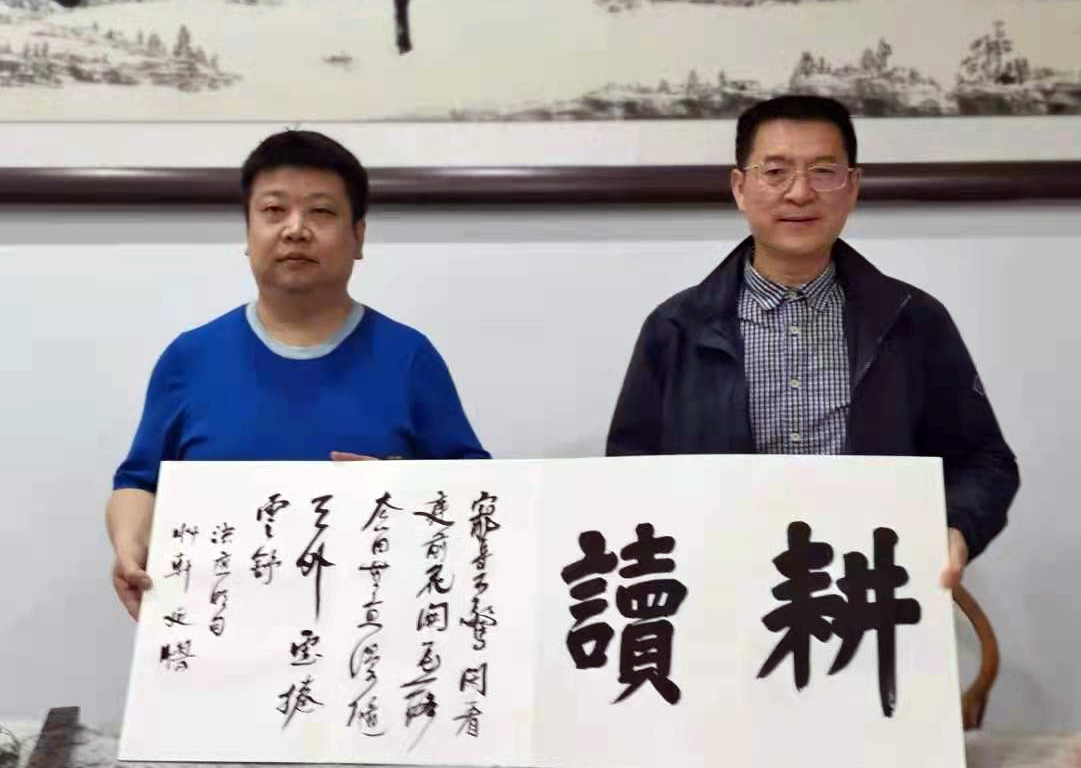 耕讀
寵辱不驚閑看
庭前花開花落
去留無意漫隨
天外雲捲
雲舒
洪應明句
艸軒